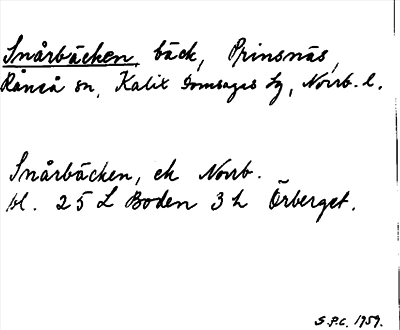 Snårbäcken, bäck, Prinsnäs,
Råneå sn, Kalix domsagas tg, Norrb. l.
Snårbäcken, ek Norrb.
bl. 25 L Boden 3 h Örberget.
S.P.C. 1959.